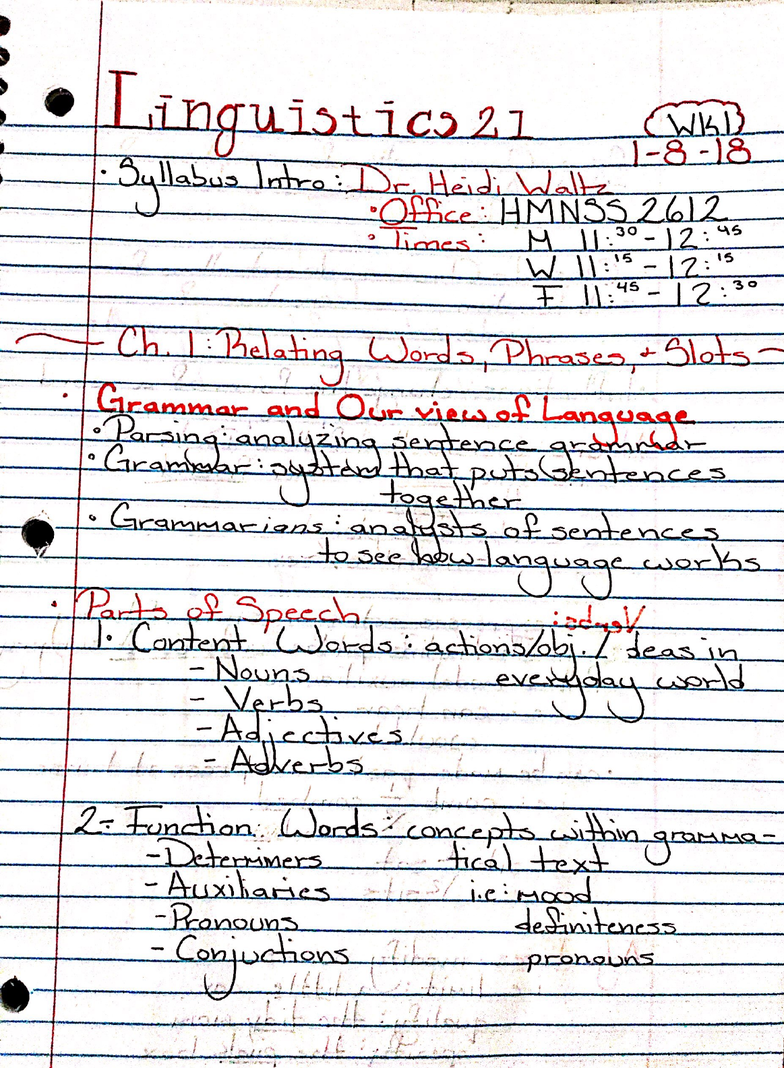 Linguistics 21
WK1
1-8-18
• Syllabus Intro: Dr. Heidi Waltz
• Office: HMNSS 2612
• Times: M 11:30 - 12:45
W 11:15 - 12:15
F 11:45 - 12:30
Ch. 1: Relating Words, Phrases, + Slots
• Grammar and Our view of Language
• Parsing: analyzing sentence grammar
• Grammar: system that puts sentences
together
• Grammarians: analysts of sentences
to see how language works
• Parts of Speech
1. Content Words: actions/obj./ideas in
everyday world
- Nouns
- Verbs
- Adjectives
- Adverbs
2. Function Words: concepts within gramma-
tical text
- Determiners
- Auxiliaries i.e: mood
- Pronouns definiteness
- Conjuctions pronouns